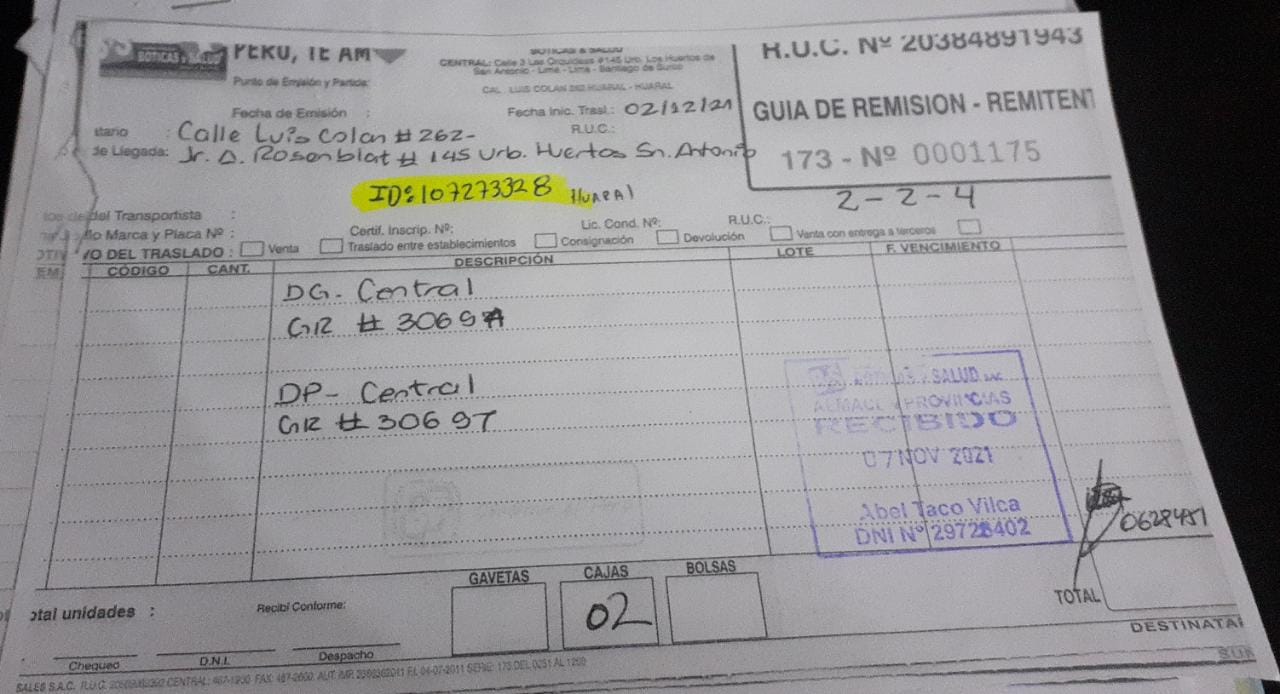 BOTICAS Y SALUD
PERU, TE AM
BOTICAS & SALUD
CENTRAL: Calle 3 Las Orquideas #145 Urb. Los Huertos de
San Antonio - Lima - Lima - Santiago de Surco
CAL. LUIS COLAN 262 HUARAL - HUARAL
R.U.C. Nº 20384891943
GUIA DE REMISION - REMITENT
173 - Nº 0001175
Punto de Emisión y Partida:
Fecha de Emisión :
Fecha Inic. Trasl.: 02/12/21
tario : Calle Luis Colan # 262-
R.U.C.:
de Llegada: Jr. D. Rosenblat # 145 Urb. Huertos Sn. Antonio
ID: 107273328 HUARAL
2-2-4
del Transportista :
Marca y Placa Nº :
Certif. Inscrip. Nº:
Lic. Cond. Nº:
R.U.C.:
O DEL TRASLADO : Venta Traslado entre establecimientos Consignación Devolución Venta con entrega a terceros
EM CÓDIGO CANT. DESCRIPCIÓN LOTE F. VENCIMIENTO
DG. Central
GR # 30694
DP- Central
GR # 30697
SALUD SAC
PROVINCIAS
RECIBIDO
07 NOV 2021
Abel Taco Vilca
DNI Nº 29728402
0628451
GAVETAS CAJAS BOLSAS
02
otal unidades :
Recibí Conforme:
TOTAL
DESTINATA
Chequeo D.N.I. Despacho